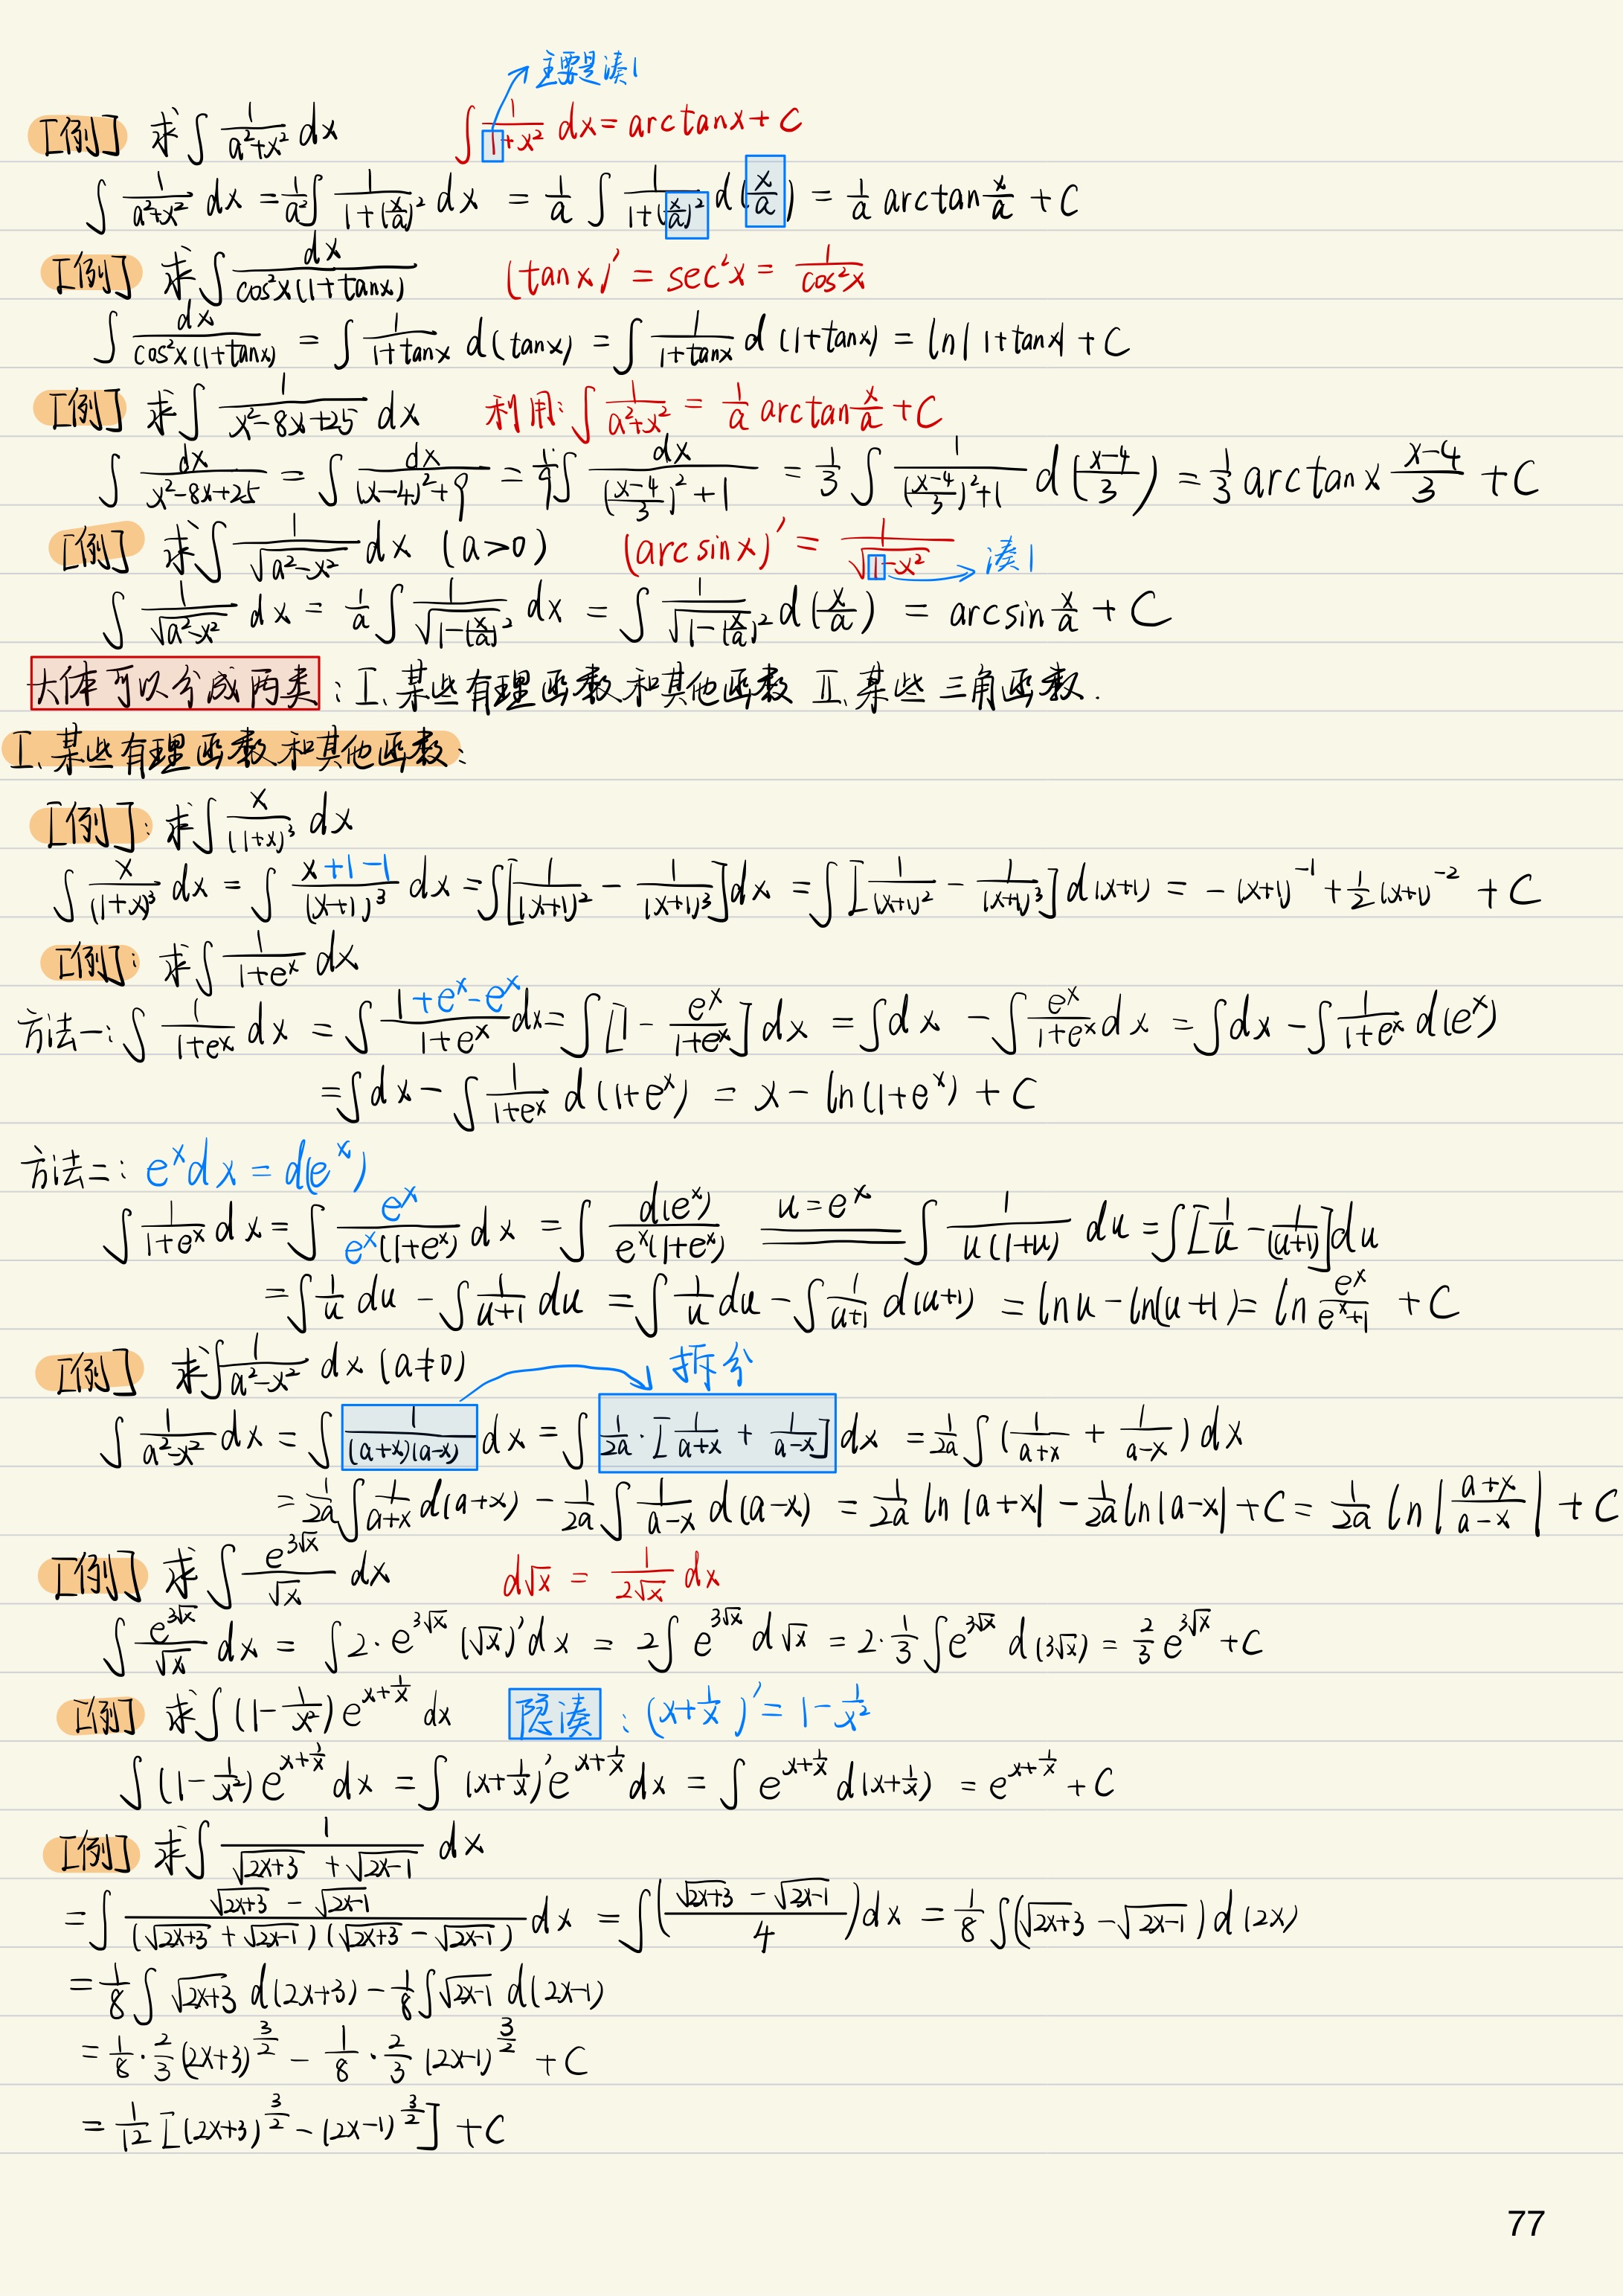 主要是凑1
[例] 求∫ 1/(a²+x²) dx   ∫ 1/(1+x²) dx = arctanx + C
∫ 1/(a²+x²) dx = 1/a² ∫ 1/(1+(x/a)²) dx = 1/a ∫ 1/(1+(x/a)²) d(x/a) = 1/a arctan x/a + C
[例] 求∫ dx/(cos²x(1+tanx))   (tanx)′ = sec²x = 1/cos²x
∫ dx/(cos²x(1+tanx)) = ∫ 1/(1+tanx) d(tanx) = ∫ 1/(1+tanx) d(1+tanx) = ln|1+tanx| + C
[例] 求∫ 1/(x²-8x+25) dx   利用: ∫ 1/(a²+x²) = 1/a arctan x/a + C
∫ dx/(x²-8x+25) = ∫ dx/((x-4)²+9) = 1/9 ∫ dx/(((x-4)/3)²+1) = 1/3 ∫ 1/(((x-4)/3)²+1) d((x-4)/3) = 1/3 arctan x (x-4)/3 + C
[例] 求∫ 1/√(a²-x²) dx (a>0)   (arcsinx)′ = 1/√(1-x²) 凑1
∫ 1/√(a²-x²) dx = 1/a ∫ 1/√(1-(x/a)²) dx = ∫ 1/√(1-(x/a)²) d(x/a) = arcsin x/a + C
大体可以分成两类: I、某些有理函数和其他函数 II、某些三角函数.
I、某些有理函数和其他函数:
[例]: 求∫ x/(1+x)³ dx
∫ x/(1+x)³ dx = ∫ (x+1-1)/(x+1)³ dx = ∫[1/(x+1)² - 1/(x+1)³]dx = ∫[1/(x+1)² - 1/(x+1)³] d(x+1) = -(x+1)⁻¹ + 1/2 (x+1)⁻² + C
[例]: 求∫ 1/(1+eˣ) dx
方法一: ∫ 1/(1+eˣ) dx = ∫ (1+eˣ-eˣ)/(1+eˣ) dx = ∫[1 - eˣ/(1+eˣ)] dx = ∫dx - ∫ eˣ/(1+eˣ) dx = ∫dx - ∫ 1/(1+eˣ) d(eˣ)
= ∫dx - ∫ 1/(1+eˣ) d(1+eˣ) = x - ln(1+eˣ) + C
方法二: eˣdx = d(eˣ)
∫ 1/(1+eˣ) dx = ∫ eˣ/(eˣ(1+eˣ)) dx = ∫ d(eˣ)/(eˣ(1+eˣ)) u=eˣ ∫ 1/(u(1+u)) du = ∫[1/u - 1/(u+1)]du
= ∫ 1/u du - ∫ 1/(u+1) du = ∫ 1/u du - ∫ 1/(u+1) d(u+1) = lnu - ln(u+1) = ln eˣ/(eˣ+1) + C
[例] 求∫ 1/(a²-x²) dx (a≠0)   拆分
∫ 1/(a²-x²) dx = ∫ 1/((a+x)(a-x)) dx = ∫ 1/2a·[1/(a+x) + 1/(a-x)] dx = 1/2a ∫(1/(a+x) + 1/(a-x)) dx
= 1/2a ∫ 1/(a+x) d(a+x) - 1/2a ∫ 1/(a-x) d(a-x) = 1/2a ln|a+x| - 1/2a ln|a-x| + C = 1/2a ln|(a+x)/(a-x)| + C
[例] 求∫ e^(3√x)/√x dx   d√x = 1/(2√x) dx
∫ e^(3√x)/√x dx = ∫2·e^(3√x) (√x)′dx = 2∫ e^(3√x) d√x = 2·1/3 ∫e^(3√x) d(3√x) = 2/3 e^(3√x) + C
[例] 求∫(1-1/x²)e^(x+1/x) dx   隐凑: (x+1/x)′ = 1-1/x²
∫(1-1/x²)e^(x+1/x) dx = ∫(x+1/x)′e^(x+1/x) dx = ∫ e^(x+1/x) d(x+1/x) = e^(x+1/x) + C
[例] 求∫ 1/(√(2x+3) + √(2x-1)) dx
= ∫ (√(2x+3) - √(2x-1))/((√(2x+3) + √(2x-1))(√(2x+3) - √(2x-1))) dx = ∫((√(2x+3) - √(2x-1))/4)dx = 1/8 ∫(√(2x+3) - √(2x-1)) d(2x)
= 1/8 ∫ √(2x+3) d(2x+3) - 1/8 ∫√(2x-1) d(2x-1)
= 1/8·2/3 (2x+3)^(3/2) - 1/8·2/3 (2x-1)^(3/2) + C
= 1/12 [(2x+3)^(3/2) - (2x-1)^(3/2)] + C
77